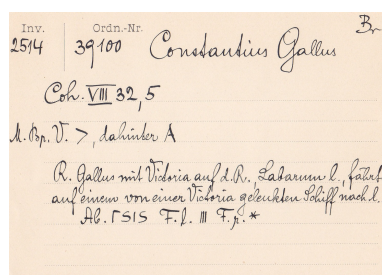 Br
Inv. Ordn.-Nr.
2514 39100 Constantius Gallus
Coh. VIII 32,5
M. Bp. V. >, dahinter A
R. Gallus mit Victoria auf d. R., Labarum l., fährt
auf einem von einer Victoria gelenkten Schiff nach l.
Ab. ΓSIS F. l. III F. r. *